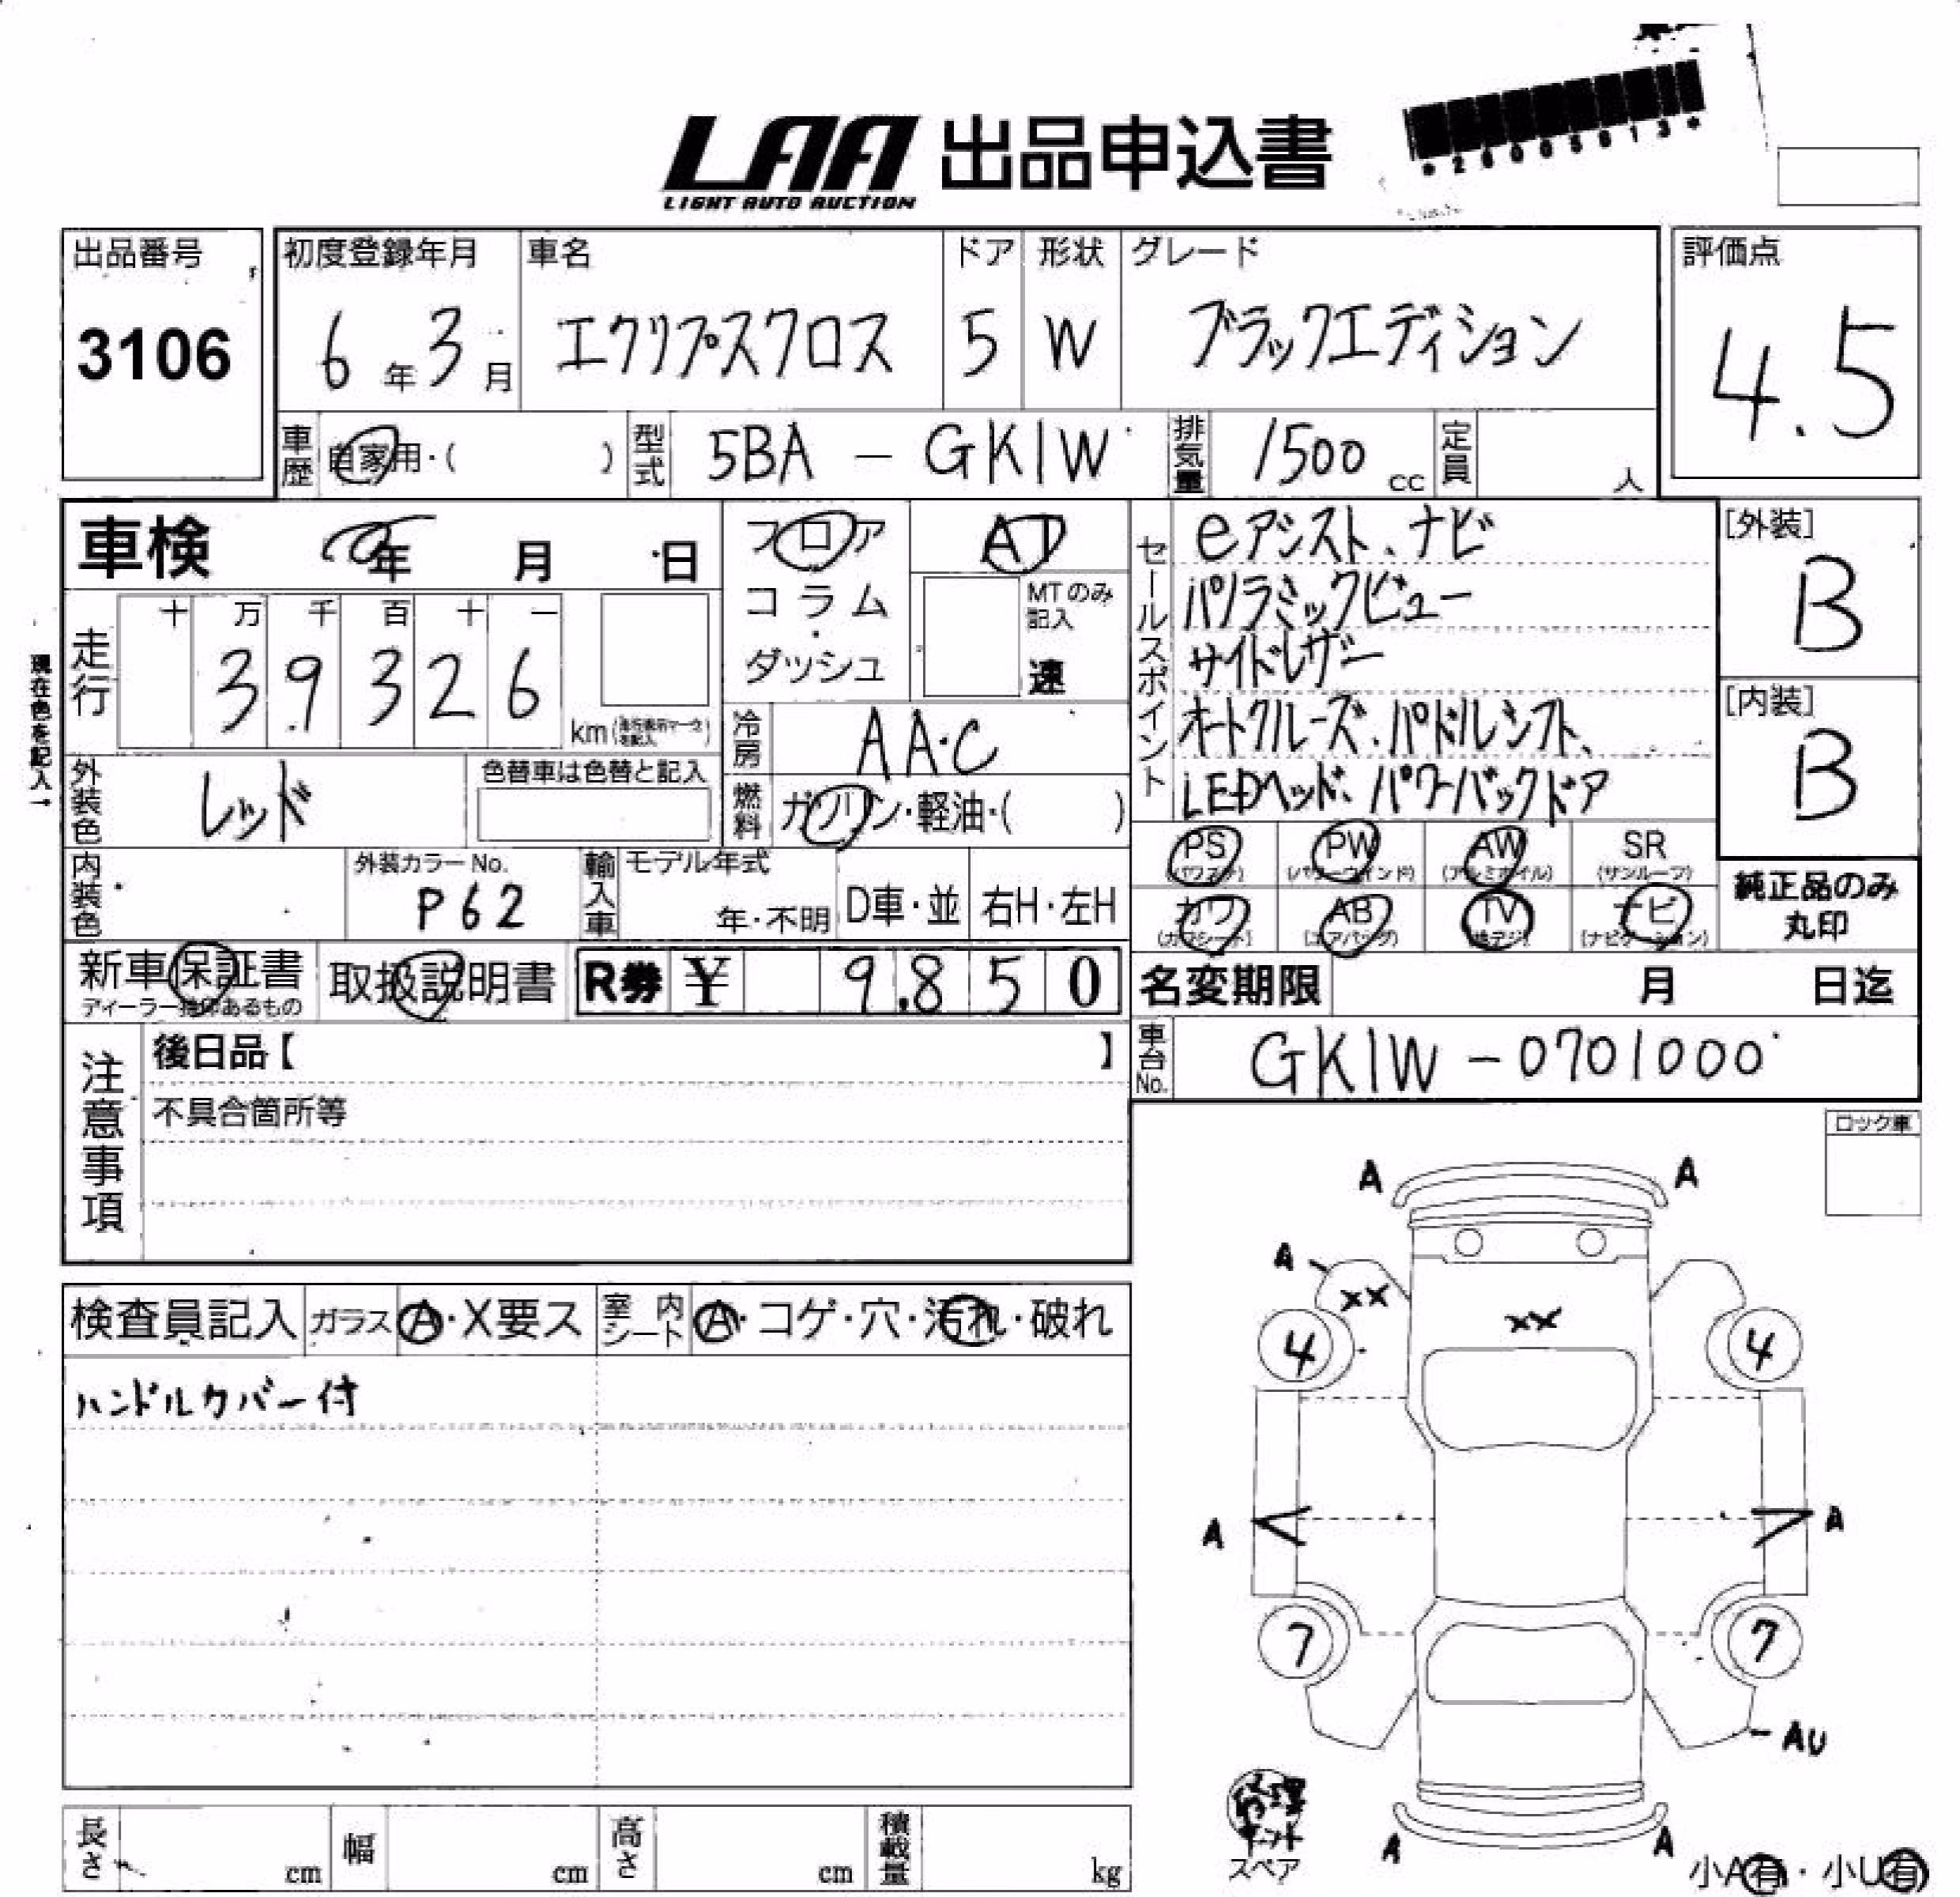 LAA 出品申込書
LIGHT AUTO AUCTION
出品番号
3106
初度登録年月
6年3月
車名
エクリプスクロス
ドア
5
形状
W
グレード
ブラックエディション
評価点
4.5
車歴 自家用・( )
型式 5BA - GK1W
排気量 1500 cc
定員 人
車検 年 月 日
走行
十 万 千 百 十 一
3 9 3 2 6
km
現在色を記入→
フロア
コラム
・
ダッシュ
AT
MTのみ記入
速
冷房 AA・C
燃料 ガソリン・軽油・( )
外装色 レッド
色替車は色替と記入
内装色
外装カラーNo.
P62
輸入車
モデル年式
年・不明
D車・並
右H・左H
セールスポイント
eアシスト、ナビ
パノラミックビュー
サイドレザー
オートクルーズ、パドルシフト、
LEDヘッド、パワーバックドア
[外装]
B
[内装]
B
PS
(パワステ)
PW
(パワーウインド)
AW
(アルミホイル)
SR
(サンルーフ)
カワ
(カワシート)
AB
(エアバッグ)
TV
(地デジ)
ナビ
(ナビゲーション)
純正品のみ
丸印
新車保証書
ディーラー捺印あるもの
取扱説明書
R券 ¥ 9,850
名変期限 月 日迄
車台No. GK1W-0701000
注意事項
後日品【 】
不具合箇所等
ロック車
検査員記入
ガラス A・X要ス
室内シート A・コゲ・穴・汚れ・破れ
ハンドルカバー付
A A
A
XX
XX
4 4
A A
7 7
AU
A A
スペア
小A有・小U有
長さ cm
幅 cm
高さ cm
積載量 kg